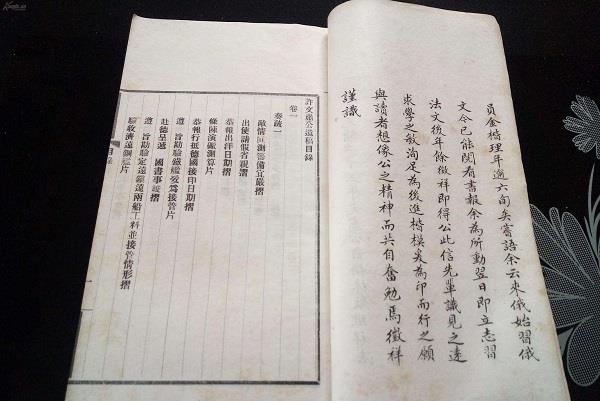 員金楷理年逾六旬矣嘗語余云來俄始習俄
文今已能閱看書報余為所動翌日即立志習
法文後年餘徵祥即得公此信先輩識見之遠
求學之敏洵足為後進楷模爰為印而行之願
與讀者想像公之精神而共自奮勉焉徵祥
謹識
許文肅公遺稿目錄
卷一
奏疏一
敵情叵測籌備宜嚴摺
出使請假省親摺
恭報出洋日期摺
條陳測算片
恭報行抵德國接印日期摺
遵 旨勘驗鐵艦接管片
赴德呈遞 國書事竣摺
遵 旨勘驗定遠鎮遠兩船工料並接管情形摺
驗收濟遠鋼艦片
目錄